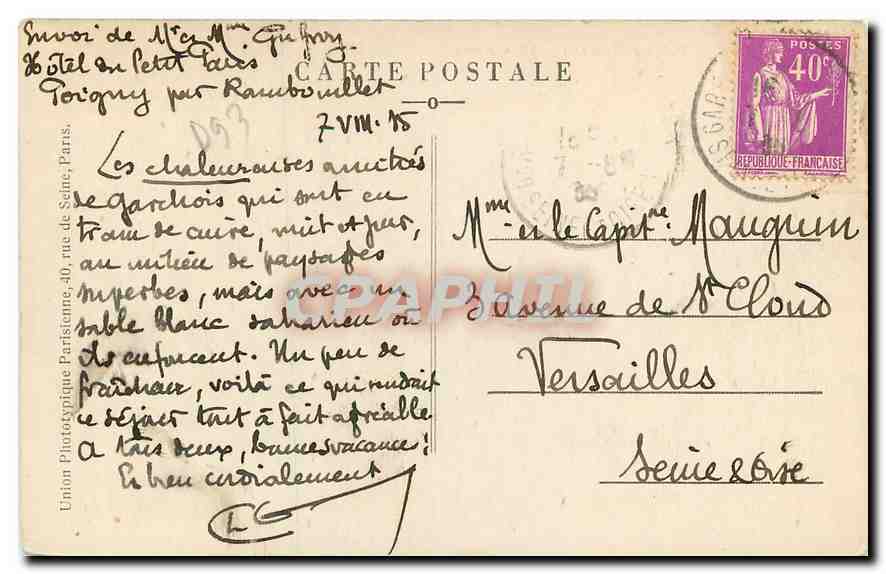 Envoi de Mr et Mme
Hôtel du Petit Paris
Poigny par Rambouillet
7 VIII. 35
D93
CARTE POSTALE
POSTES
40c
REPUBLIQUE-FRANÇAISE
Les chaleureuses amitiés
de Garchois qui sont en
train de cuire, nuit et jour,
au milieu de paysages
superbes, mais avec un
sable blanc saharien où
ils enfoncent. Un peu de
fraîcheur, voilà ce qui rendrait
ce séjour tout à fait agréable
A tous deux, bonnes vacances!
Et bien cordialement
LG
Mme et le Capitne Mauguin
3 avenue de St Cloud
Versailles
Seine & Oise
CPAPHIL
Union Phototypique Parisienne, 40, rue de Seine, Paris.